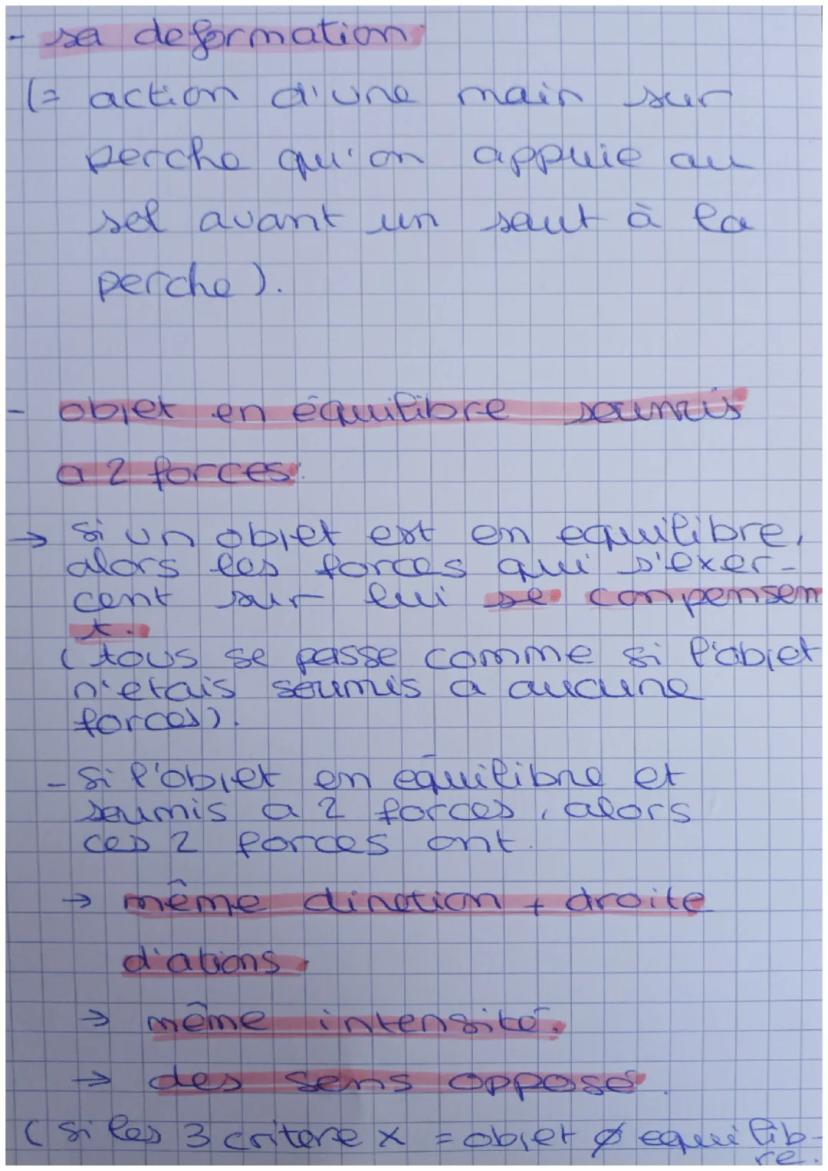 - sa deformation.
(= action d'une main sur
perche qu'on appuie au
sol avant un saut à la
perche).
- objet en équilibre soumis
a 2 forces.
→ si un objet est en equilibre,
alors les forces qui s'exer-
cent sur lui se compensen
t.
(tous se passe comme si l'objet
n'etais soumis a aucune
forces).
- si l'objet en equilibre et
soumis a 2 forces, alors
ces 2 forces ont.
→ même direction + droite
d'ations.
→ même intensité.
→ des sens opposé.
(si les 3 critere x = objet ∅ equilib-
re.